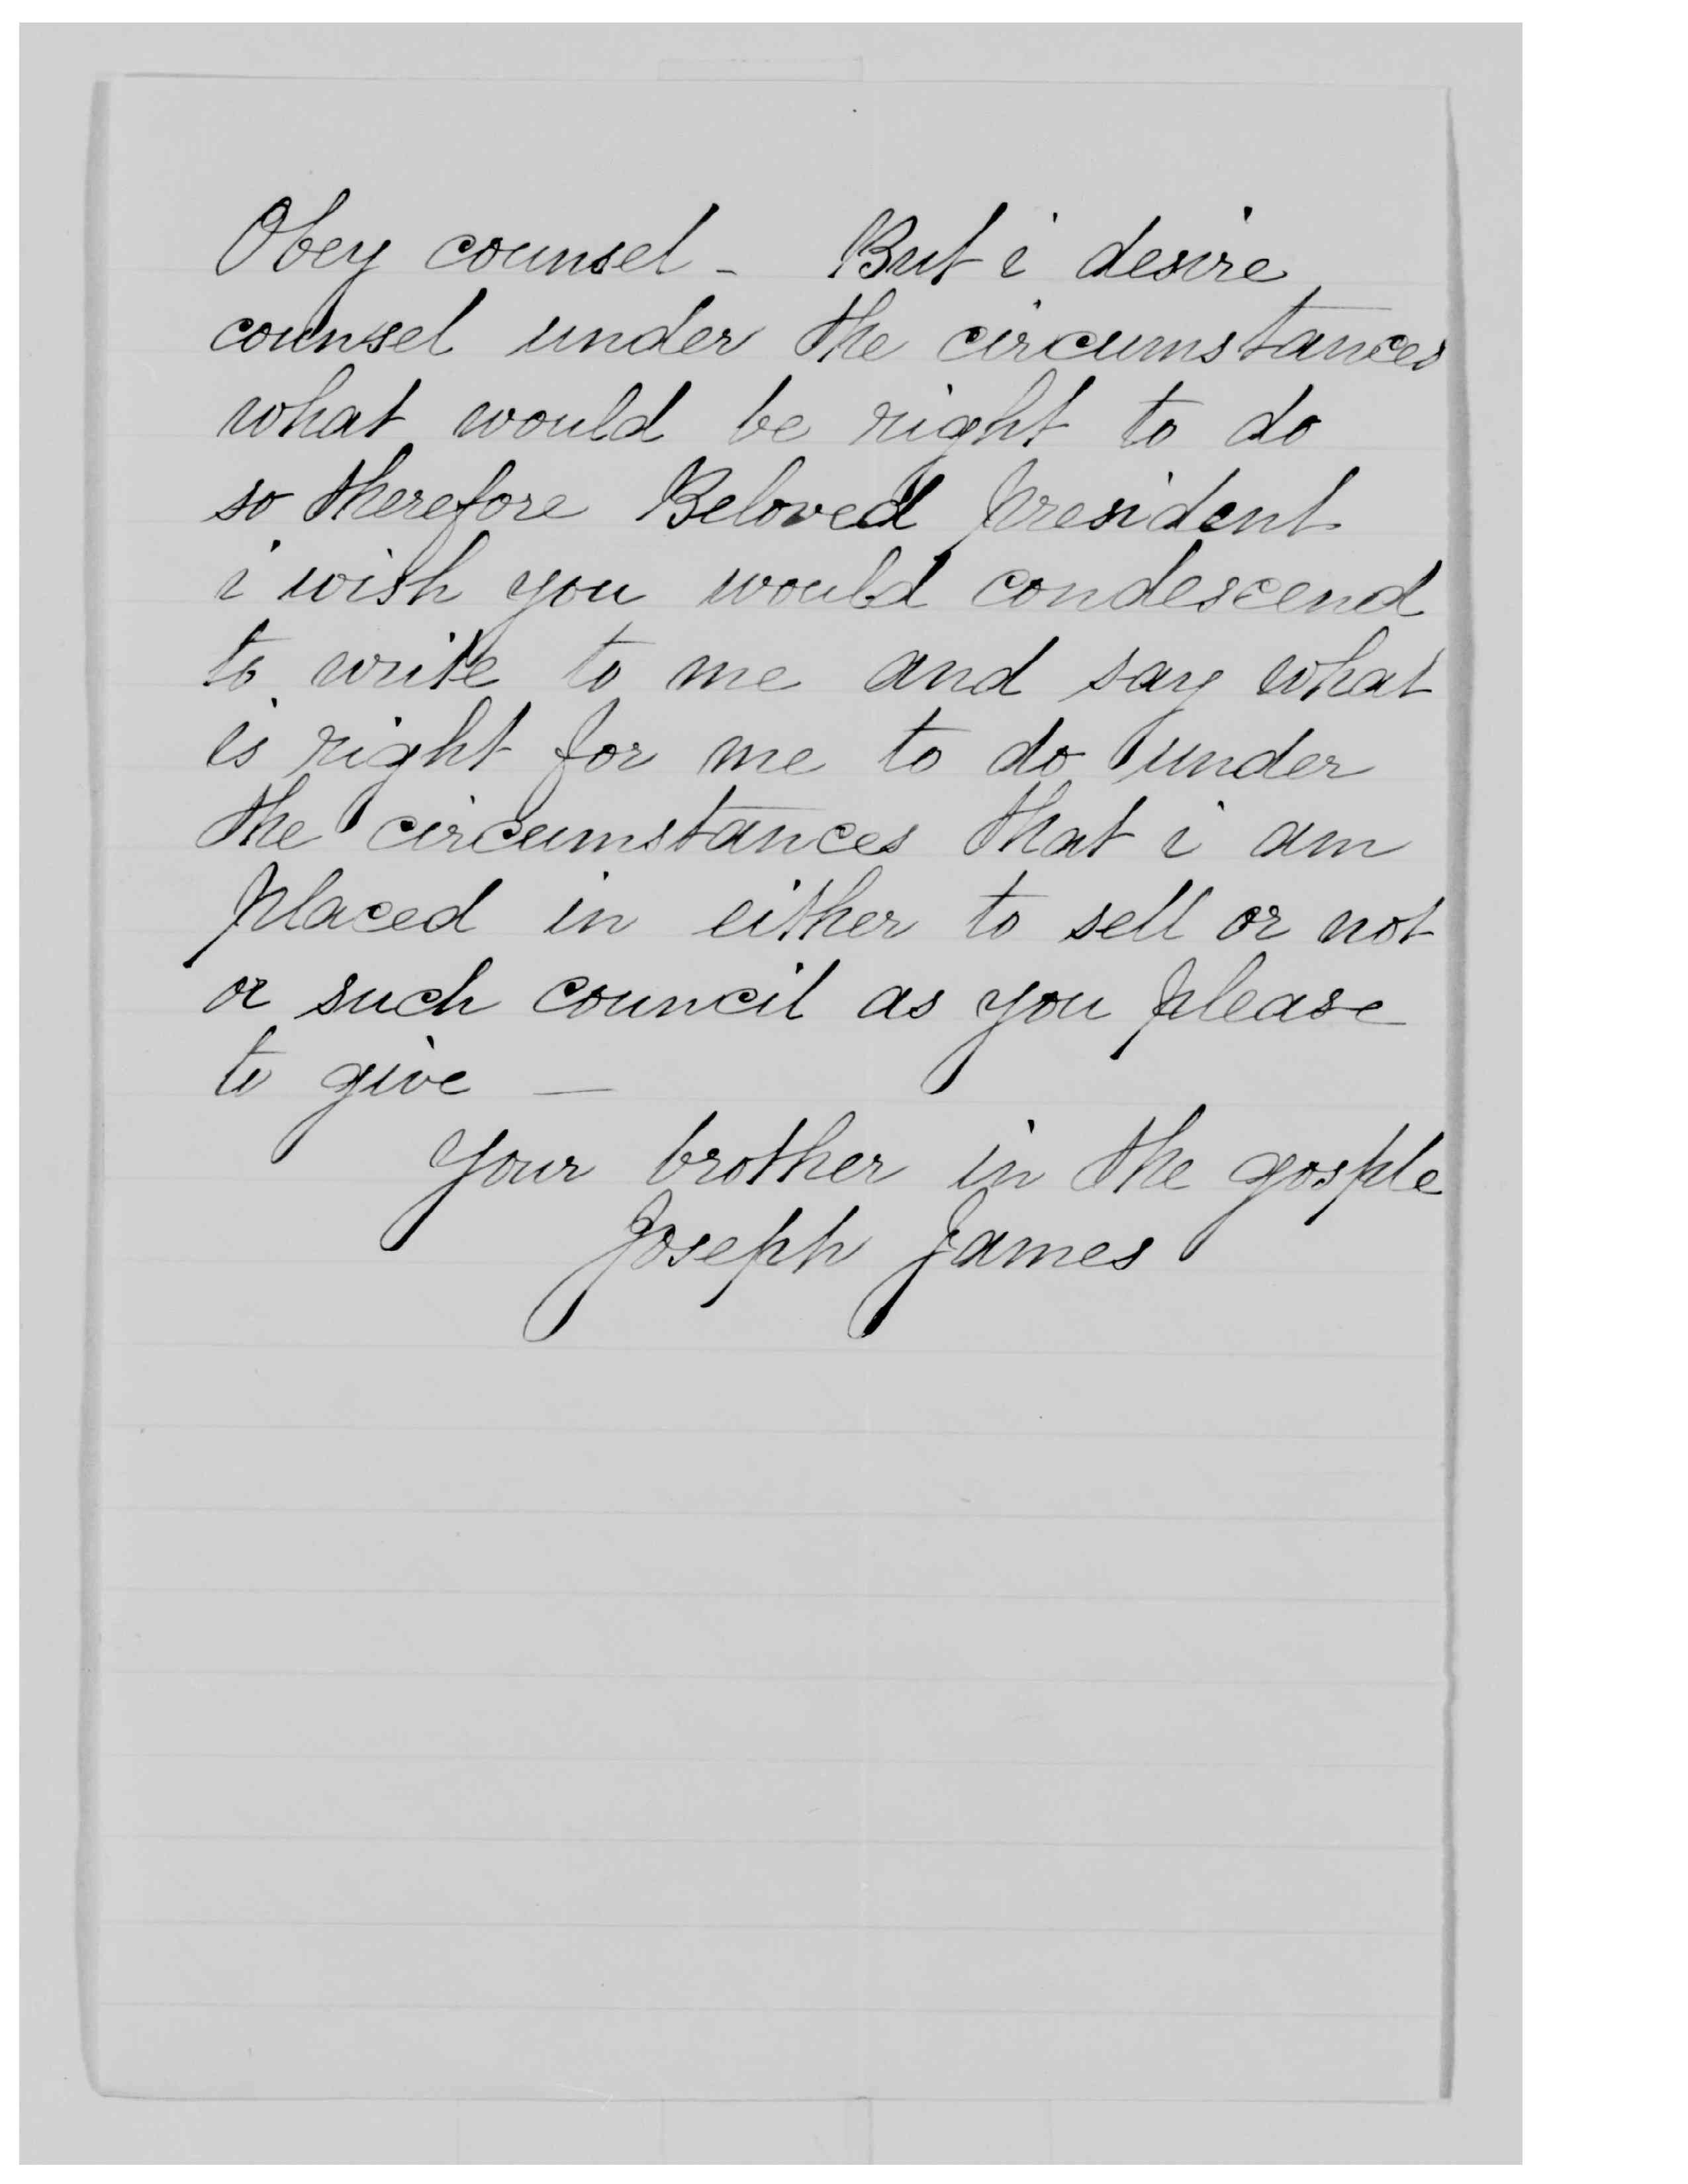 Obey counsel - But i desire
counsel under the circumstances
what would be right to do
so therefore Beloved president
i wish you would condescend
to write to me and say what
is right for me to do under
the circumstances that i am
placed in either to sell or not
or such council as you please
to give —
Your brother in the gosple
Joseph James